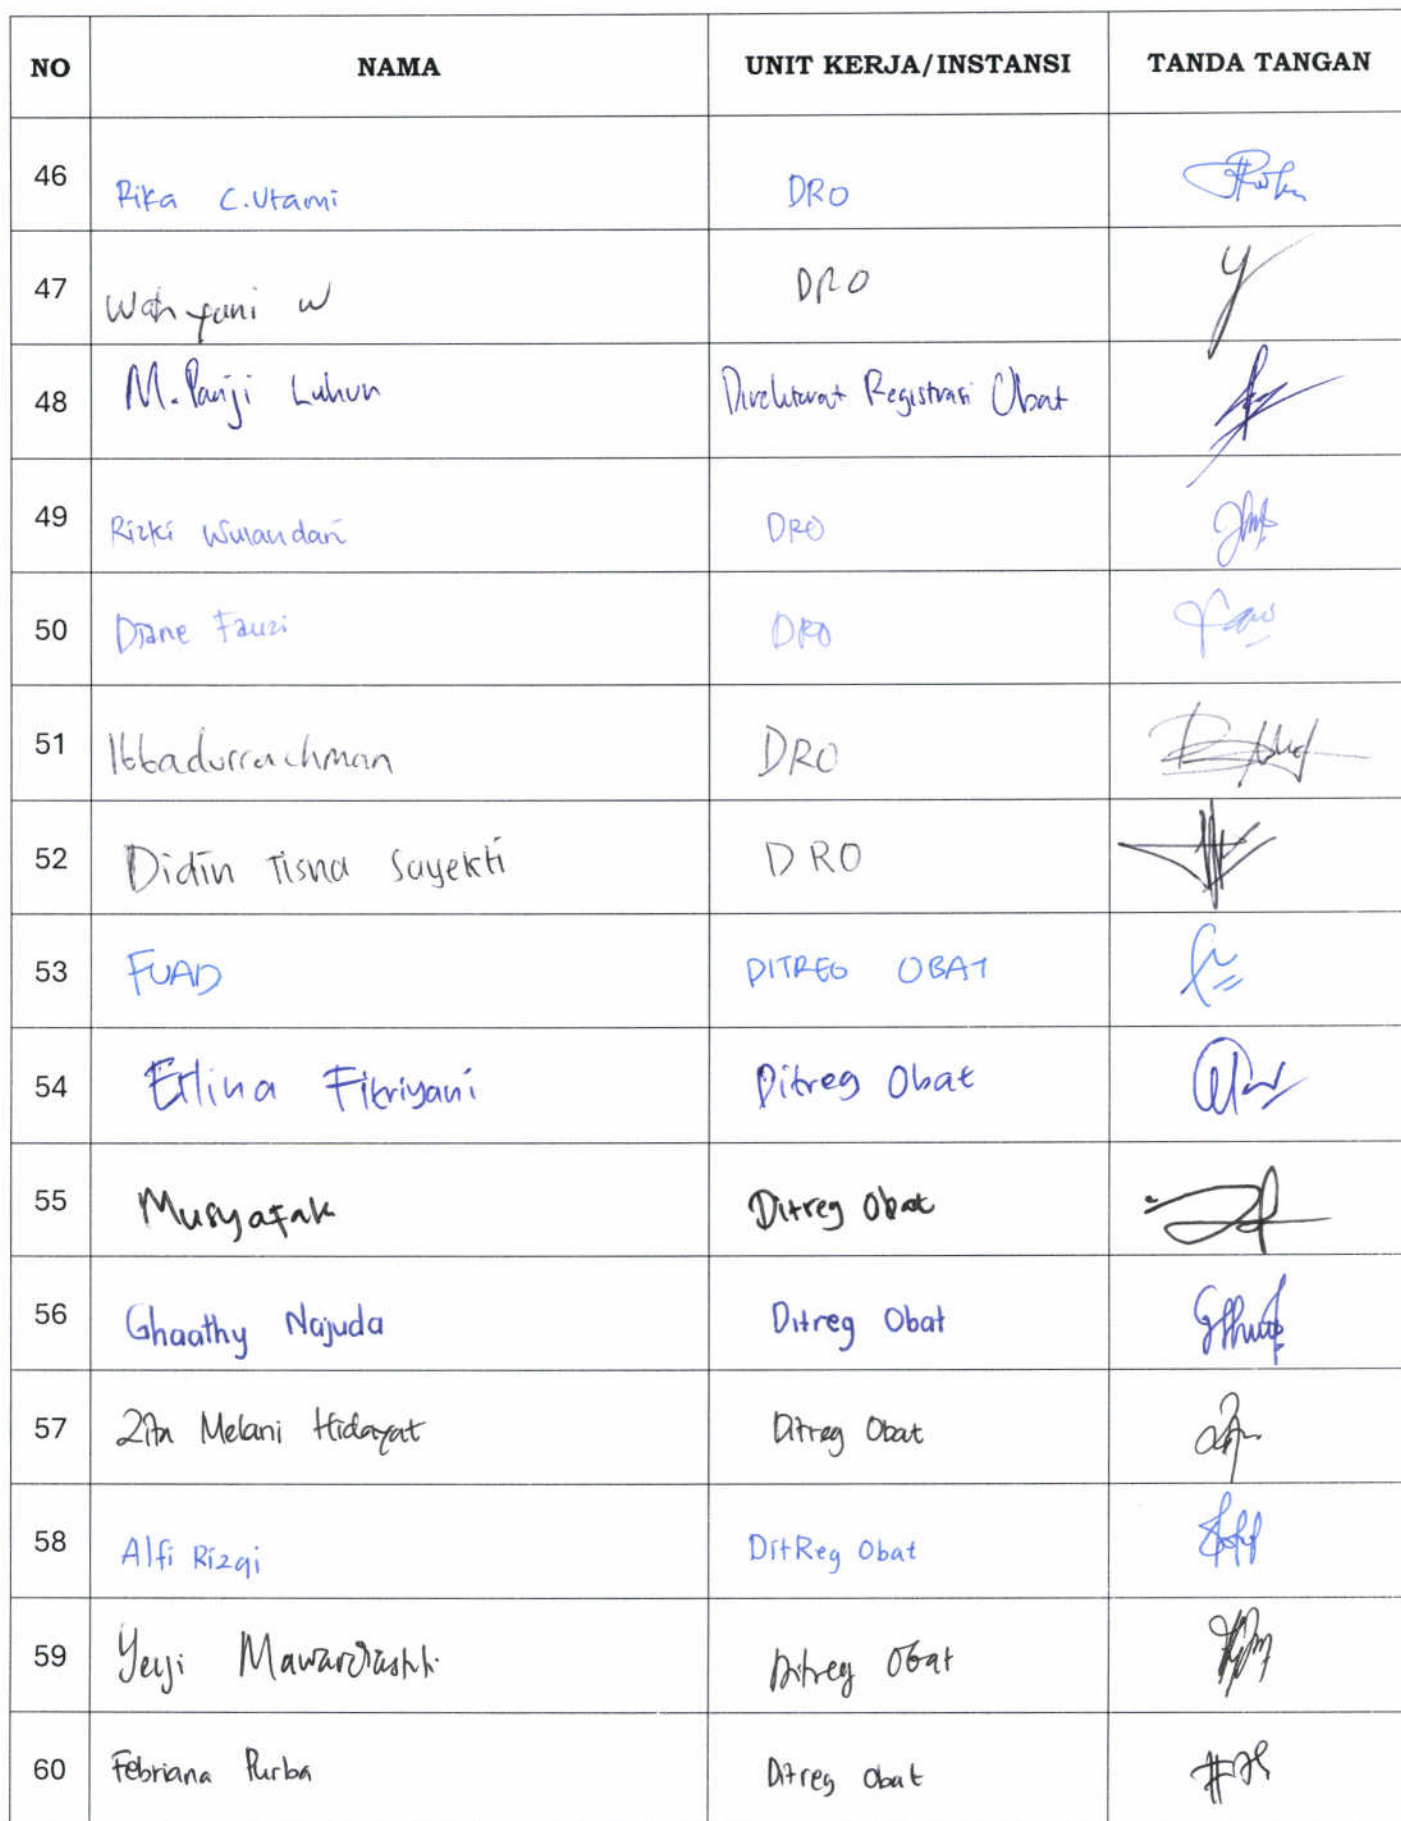 NO NAMA UNIT KERJA/INSTANSI TANDA TANGAN
46 Rika C.Utami DRO
47 Wahyuni W DRO
48 M. Panji Luhur Direktorat Registrasi Obat
49 Rizki Wulandari DRO
50 Diane Fauzi DRO
51 Ibbadurrachman DRO
52 Didin Tisna Sayekti DRO
53 FUAD DITREG OBAT
54 Erlina Fikriyani Ditreg Obat
55 Musyafak Ditreg Obat
56 Ghaathy Najuda Ditreg Obat
57 Zita Melani Hidayat Ditreg Obat
58 Alfi Rizqi DitReg Obat
59 Yeyi Ditreg Obat
60 Febriana Purba Ditreg Obat